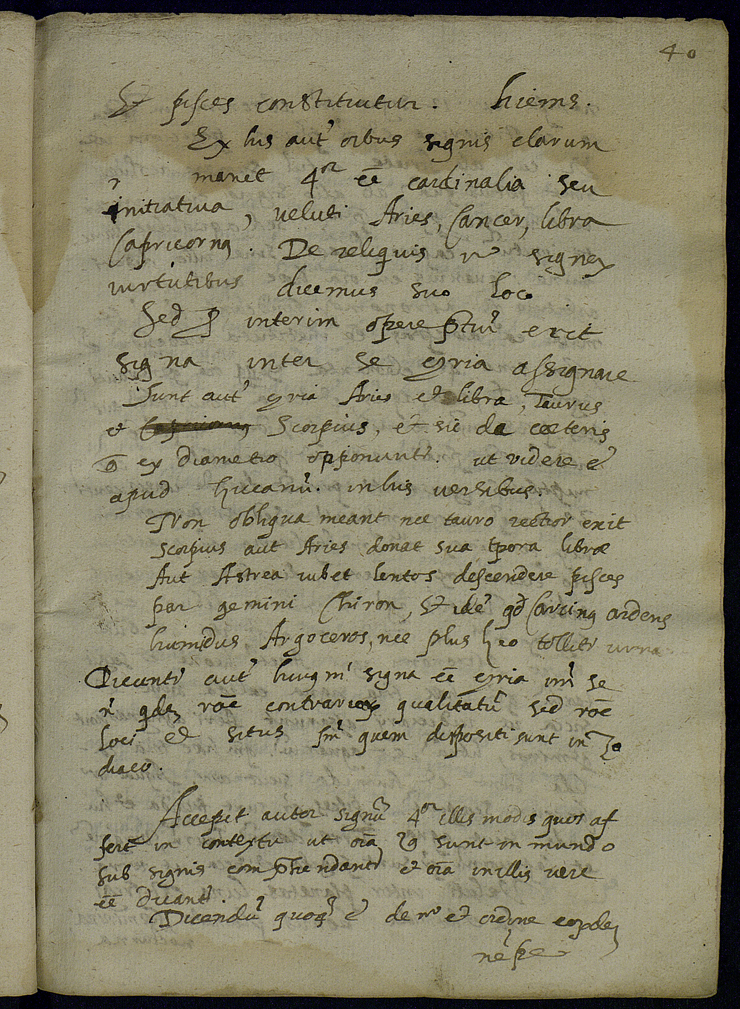 40
Et pisces constituitur. hiems.
Ex his aut' oibus signis clarum
manet 4or eē cardinalia seu
initiativa, veluti Aries, Cancer, libra
Capricorng. De reliquis signoꝝ
virtutibus dicemus suo loco
Sed interim opere erit
signa inter se assignare
Sunt aut' Aries et libra, Taurus
et Scorpius, et sic de cæteris
ex diametro opponunt'. ut videre ē
apud Lucanū. in his versibus.
Non obliqua meant nec tauro rectior exit
Scorpius aut Aries donat sua tpora libræ
Aut Astrea iubet lentos descendere pisces
par gemini Chiron, Et idē qd Carcing ardens
humidus Ægoceros, nec plus leo tollit' urna
Dicunt' aut' signa eē int' se
roē contrariaꝝ qualitatū sed roē
loci et situs quem dispositi sunt in Zo
diaco.
Accepit autor signū 4or illis modis quos af
fert in contextu ut oīa sunt in mundo
sub signis comp̄hendant' et oīa in illis vere
eē dicant'.
Dicendū quoq' ē de nº et ordine eorꝝde
nēpe